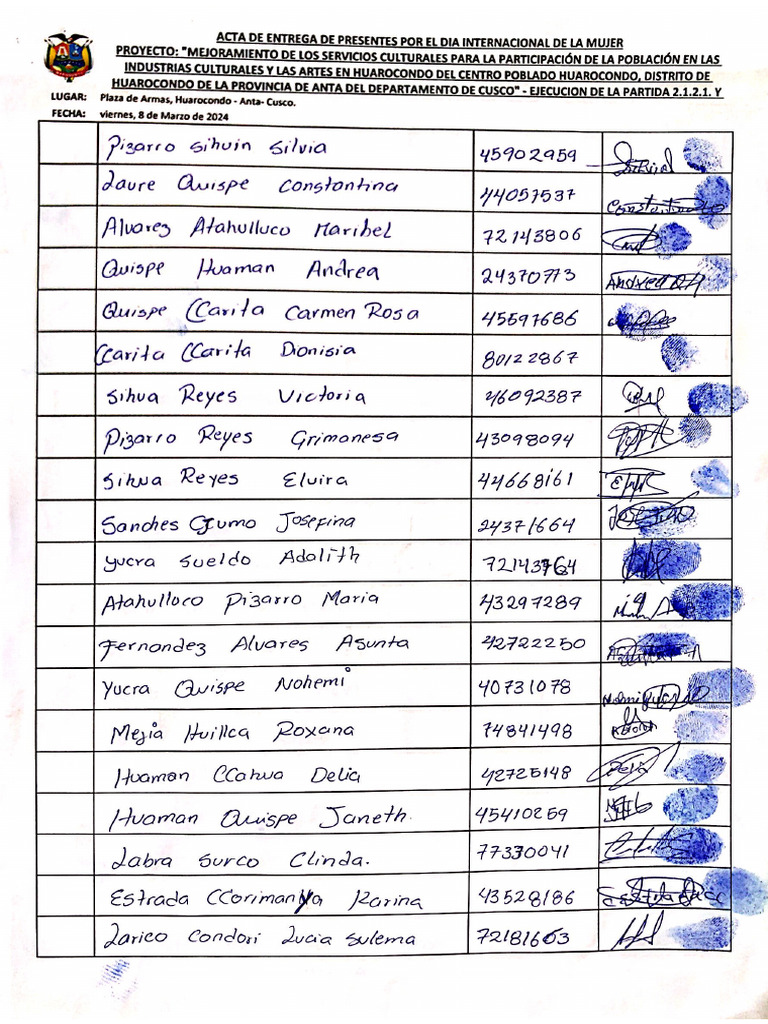 ACTA DE ENTREGA DE PRESENTES POR EL DIA INTERNACIONAL DE LA MUJER
PROYECTO: "MEJORAMIENTO DE LOS SERVICIOS CULTURALES PARA LA PARTICIPACIÓN DE LA POBLACIÓN EN LAS
INDUSTRIAS CULTURALES Y LAS ARTES EN HUAROCONDO DEL CENTRO POBLADO HUAROCONDO, DISTRITO DE
HUAROCONDO DE LA PROVINCIA DE ANTA DEL DEPARTAMENTO DE CUSCO" - EJECUCION DE LA PARTIDA 2.1.2.1. Y
LUGAR: Plaza de Armas, Huarocondo - Anta- Cusco.
FECHA: viernes, 8 de Marzo de 2024
Pizarro Sihuin Silvia 45902959
Laure Quispe Constantina 44057537
Alvarez Atahulluco Maribel 72143806
Quispe Huaman Andrea 24370773
Quispe CCarita Carmen Rosa 45597686
CCarita CCarita Dionisia 80122867
Sihua Reyes Victoria 46092387
Pizarro Reyes Grimanesa 43098094
Sihua Reyes Elvira 44668161
Sanches Gumo Josefina 24371664
Yucra Sueldo Adalith 72143764
Atahulloco Pizarro Maria 43297289
Fernandez Alvares Asunta 42722250
Yucra Quispe Nohemi 40731078
Mejia Huillca Roxana 74841498
Huaman CCahua Delia 42725148
Huaman Quispe Janeth. 45410259
Labra Surco Clinda. 77330041
Estrada CCorimanya Karina 43528186
Larico Condori Lucia Sulema 72181603